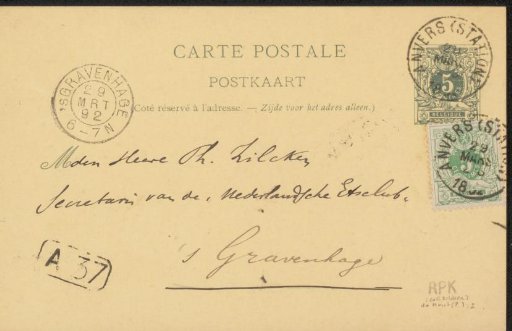 CARTE POSTALE
POSTKAART
(Coté réservé à l'adresse. — Zijde voor het adres alleen.)
'SGRAVENHAGE
29
MRT
92
6-7N
ANVERS (STATION)
5
BELGIQUE
ANVERS (STATION)
29
MARS
18
Mden Heere Ph. Zilcken
Secretaris van de "Nederlandsche Etsclub"
's Gravenhage
A 37
RPK